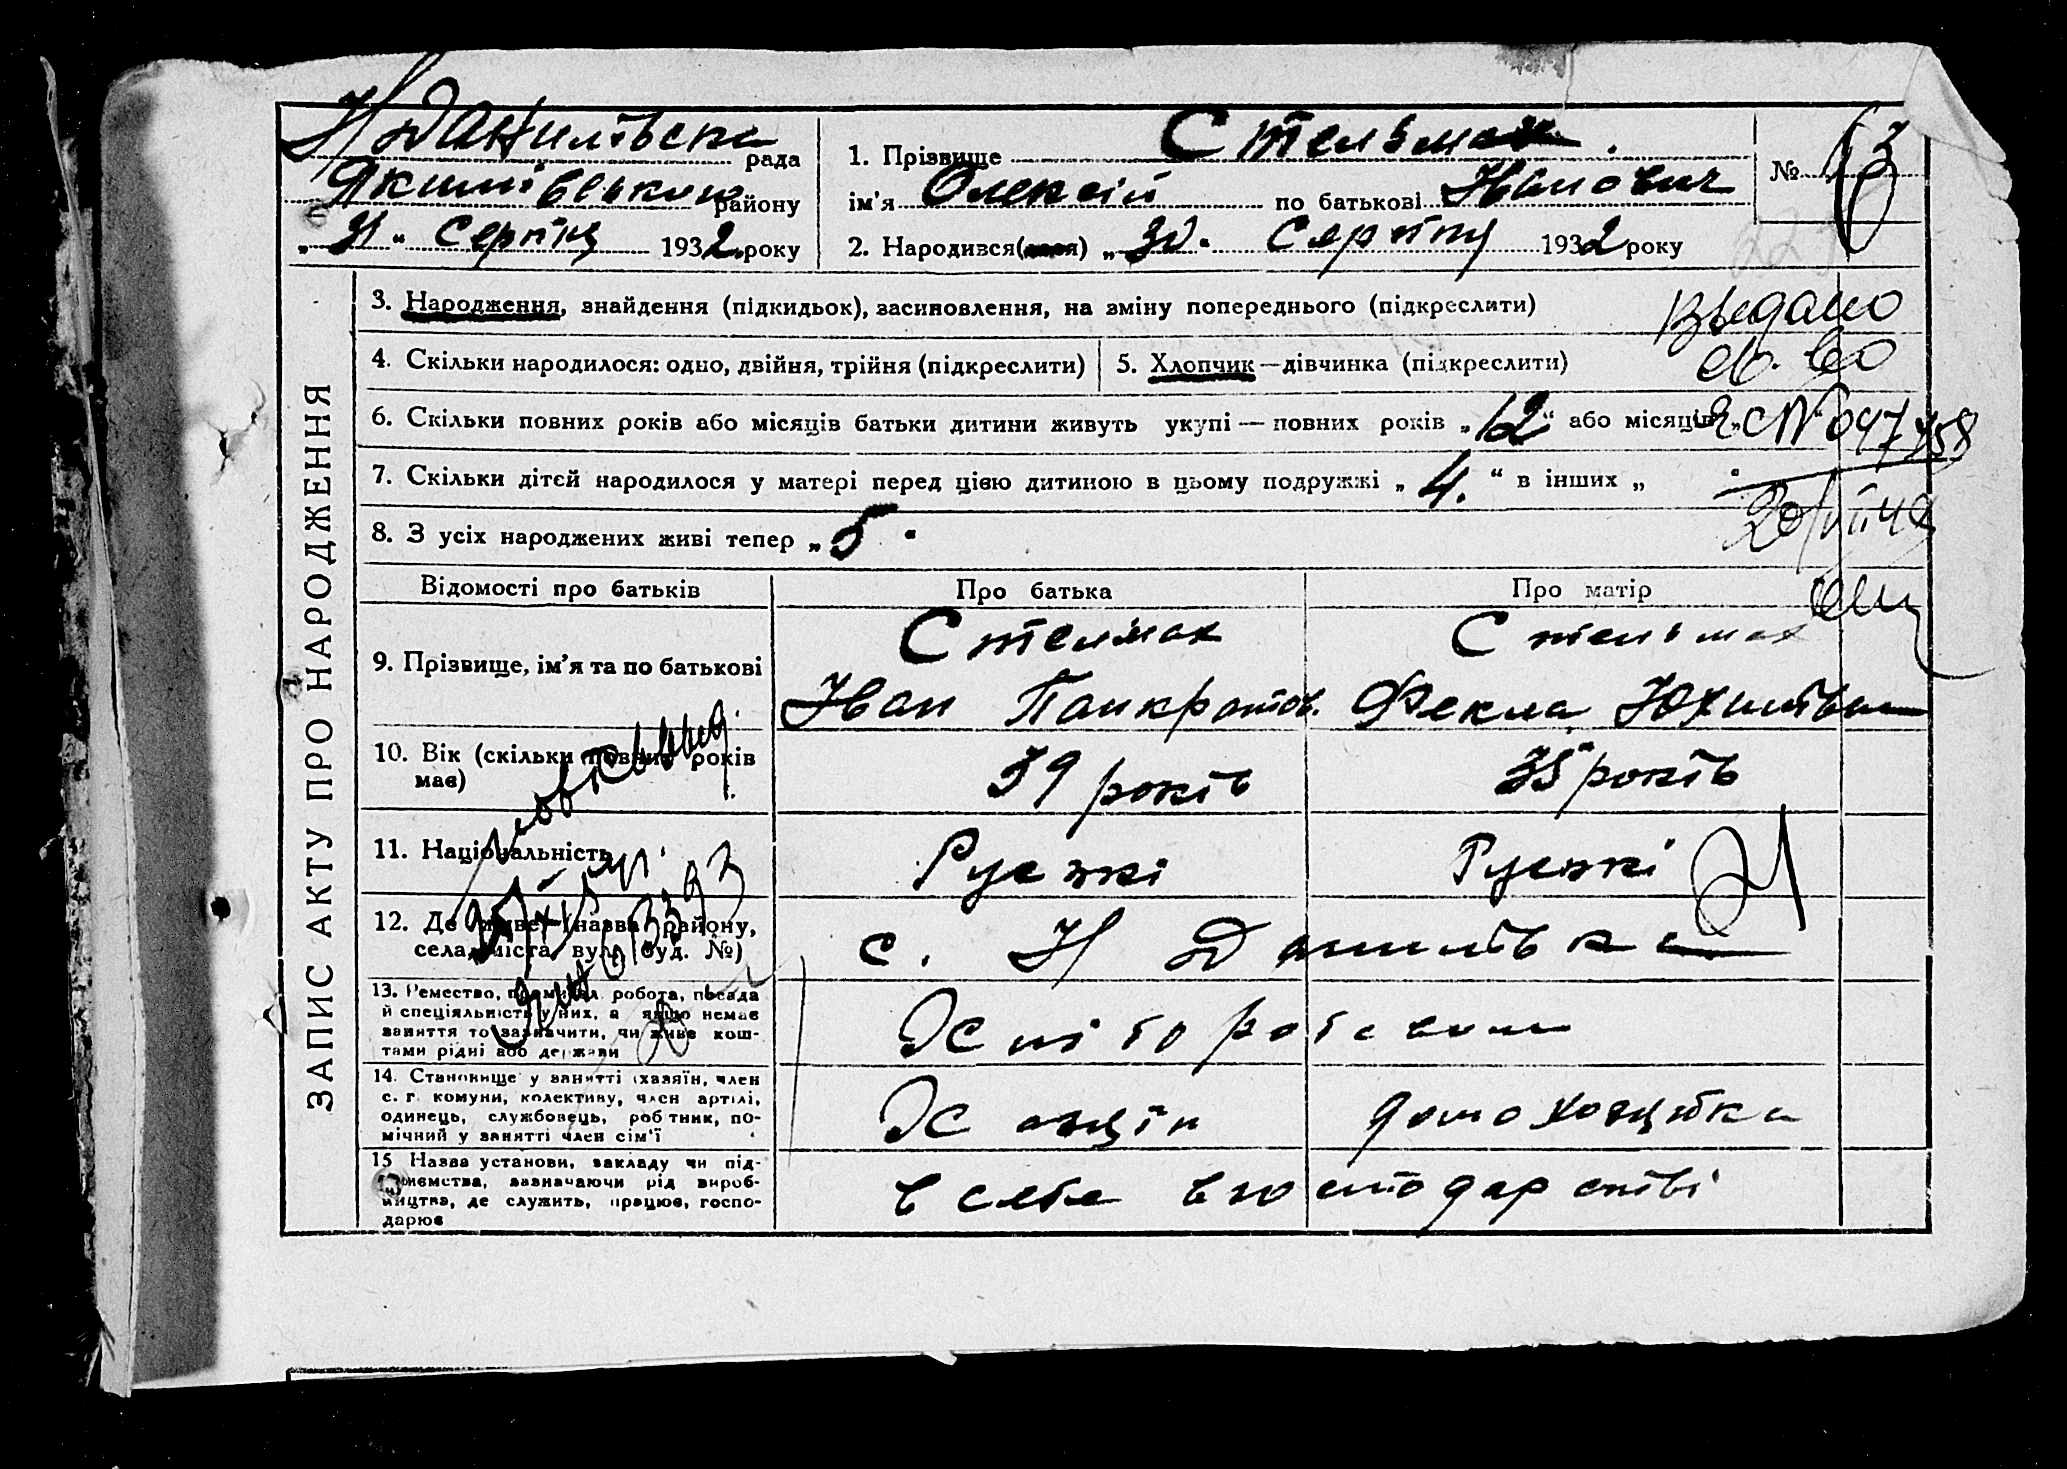 Н Данилівська рада
Якимівського району
„ 31 “ Серпня 1932 року
1. Прізвище Стельмах
ім'я Олексій по батькові Іванович
№ 63
2. Народився(лася) „ 30 “ Серпня 1932 року
ЗАПИС АКТУ ПРО НАРОДЖЕННЯ
3. Народження, знайдення (підкидьок), засиновлення, на зміну попереднього (підкреслити)
Выдано
4. Скільки народилося: одно, двійня, трійня (підкреслити)
5. Хлопчик — дівчинка (підкреслити)
св. во
6. Скільки повних років або місяців батьки дитини живуть укупі — повних років „ 12 “ або місяців „
№ 047758
7. Скільки дітей народилося у матері перед цією дитиною в цьому подружжі „ 4. “ в інших „
8. З усіх народжених живі тепер „ 5 "
Відомості про батьків
Про батька
Про матір
9. Прізвище, ім'я та по батькові
Стелмах
Іван Панкратов.
Стельмах
Фекла Юхимівна
10. Вік (скільки повних років має)
39 років
35 років
11. Національність
Руські
Руські
12. Де живе (назва району, села, міста, вул., буд. №)
с. Н Данилівка
13. Ремество, промисел, робота, посада
й спеціяльність у них, а якщо немає
заняття то зазначити, чи живе кош-
тами рідні або держави
Хліборобство
14. Становище у занятті (хазяїн, член
с. г. комуни, колективу, член артілі,
одинець, службовець, робітник, по-
мічний у занятті член сім'ї
Хазяїн
домохазяйка
15 Назва установи, закладу чи під-
приємства, зазначаючи рід вироб-
ництва, де служить, працює, госпо-
дарює
в себе в господарстві